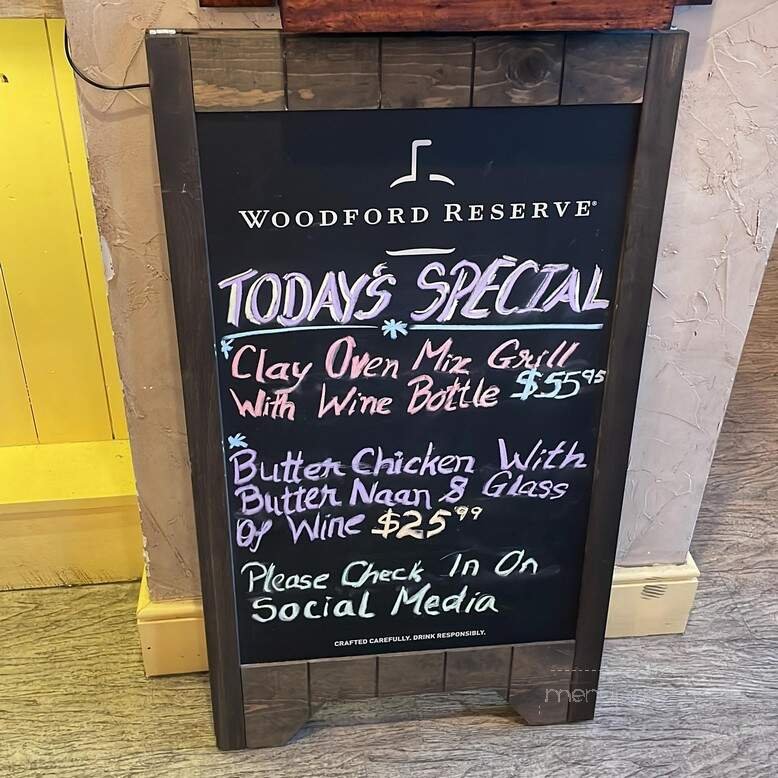 WOODFORD RESERVE®
TODAY'S SPECIAL
* Clay Oven Mix Grill
With Wine Bottle $55 95
* Butter Chicken With
Butter Naan & Glass
Of Wine $25 99
Please Check In On
Social Media
CRAFTED CAREFULLY. DRINK RESPONSIBLY.